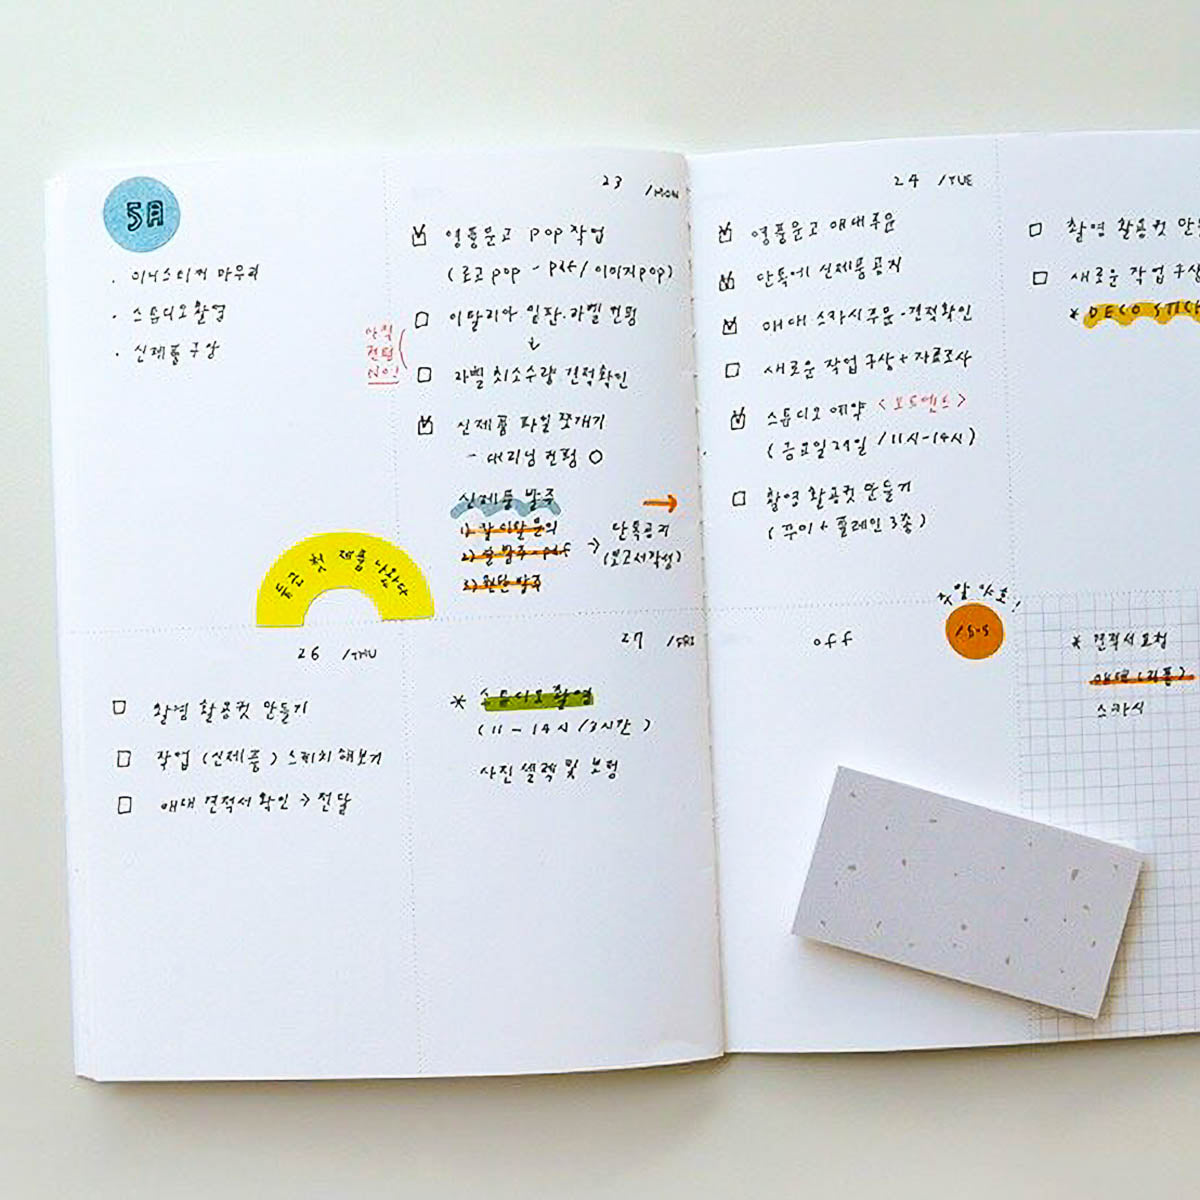 5月
· 미니스티커 마무리
· 스튜디오촬영
· 신제품 구상
23 /MON
영풍문고 pop 작업
(로고 pop - pdf/이미지pop)
이탈리아 일판·라벨 컨펌
↓
라벨 최소수량 견적확인
아직
컨펌
NO!
신제품 파일 쪼개기
- 대리님 컨펌 ○
신제품 발주
→
1) 칼이랄 문의
2) 발주 - pdf
3) 원단 발주
→ 단톡공지
(보고서작성)
두근 첫 제품 나왔다
24 /TUE
영풍문고 매대주문
단톡에 신제품공지
매대 스카시주문 - 견적확인
새로운 작업 구상 + 자료조사
스튜디오 예약 <포트멘트>
(금요일 27일 / 11시-14시)
촬영 활용컷 만들기
(꾸미 + 플레인 3종)
촬영 활용컷 만
새로운 작업 구상
* DECO STICK
26 /THU
촬영 활용컷 만들기
작업 (신제품) 스케치 해보기
매대 견적서 확인 → 전달
27 /FRI
* 스튜디오 촬영
(11 - 14시 / 3시간)
사진 셀렉 및 보정
off
양호!
15-5
* 견적서 요청
매대 (리폼)
스카시